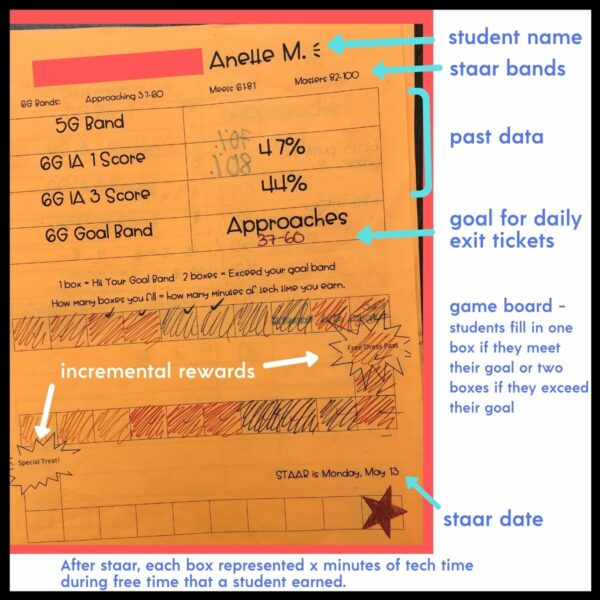 Anette M.
student name
staar bands
6G Bands: Approaching 37-60 Meets 61-81 Masters 82-100
5G Band
past data
70%
6G IA 1 Score 47%
80%
6G IA 3 Score 44%
6G Goal Band Approaches
37-60
goal for daily
exit tickets
1 box = Hit Your Goal Band 2 boxes = Exceed your goal band
How many boxes you fill = how many minutes of tech time you earn.
game board -
students fill in one
box if they meet
their goal or two
boxes if they exceed
their goal
Free Dress Pass
incremental rewards
Special Treat!
STAAR is Monday, May 13
staar date
After staar, each box represented x minutes of tech time
during free time that a student earned.